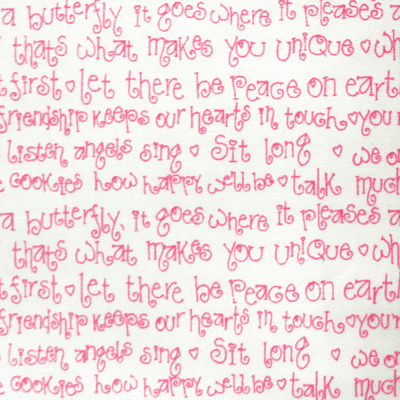 a butterfly, it goes where it pleases a
thats what makes you unique ♡ wh
t first ♡ let there be peace on eart
friendship keeps our hearts in touch ♡ you
listen angels sing ♡ Sit long ♡ we
e cookies how happy we'll be ♡ talk much
a butterfly, it goes where it pleases a
thats what makes you unique ♡ wh
t first ♡ let there be peace on eart
friendship keeps our hearts in touch ♡ your
listen angels sing ♡ Sit long ♡ we on
e cookies how happy we'll be ♡ talk much